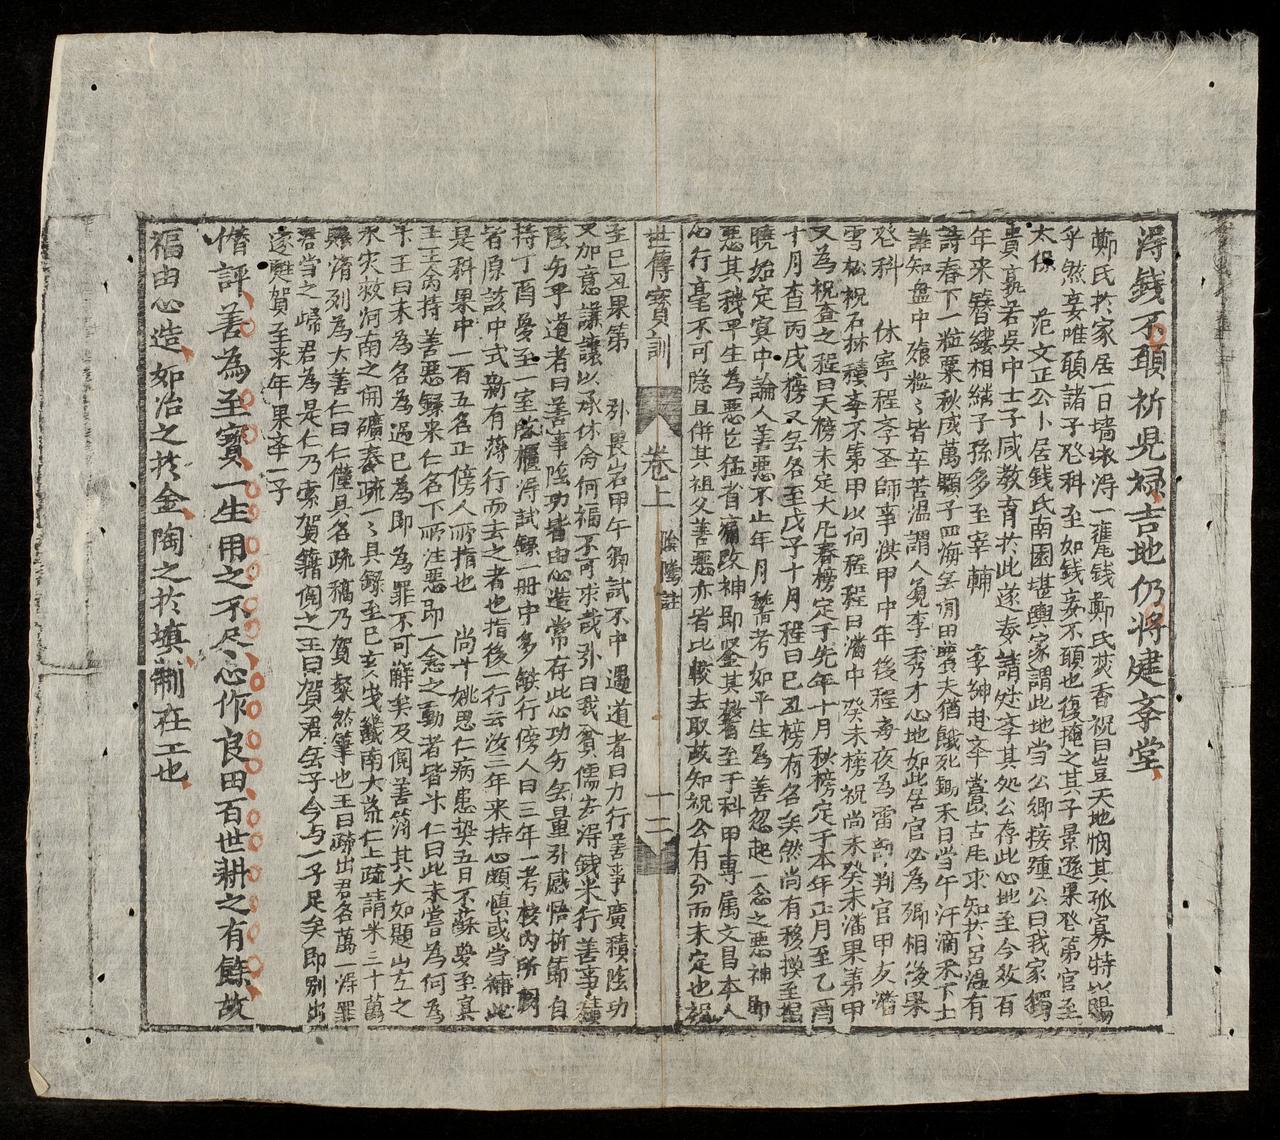 得錢不願祈見婦吉地仍將建孝堂
鄭氏於家居一日墻壞得一瓮錢鄭氏焚香祝曰豈天地憫其孤寡特以賜
乎然妾唯願諸子登科至如錢妾不願也復掩之其子景遜果登第官至
太保 范文正公卜居錢氏南園堪輿家謂此地当公卿接踵公曰我家獨
貴孰若吳中士子咸教育於此遂奏請其処公存此心地至今效有
年來簪纓相継子孫多至宰輔 李紳赴举嘗以古風求知於呂溫有
詩春下一粒粟秋成萬顆子四海無閒田農夫猶餓死鋤禾日当午汗滴禾下土
誰知盘中飧粒〻皆辛苦溫謂人覓李秀才心地如此居官必為卿相後果
登科 休寧程孝圣師事洪甲申年後程每夜為雷部判官甲友潘
雪松祝石林積孝不第甲以问程程曰潘中癸未榜祝尚未癸未潘果第甲
又為祝查之程曰天榜未定大凡春榜定于先年十月秋榜定于本年正月至乙酉
十月查丙戌榜又無名至戊子十月程曰巳丑榜有名矣然尚有移換至揭
曉始定冥中論人善惡不止年月稽考如平生為善忽起一念之惡神即
惡其穢平生為惡臣猛省痛改神即鉴其馨至于科甲專属文昌本人
心行毫不可隐且併其祖父善惡亦省比較去取故知祝公有分而未定也
世傳寳訓 卷上 陰隲註 一二
至巳丑果第 孙畏岩甲午鄉試不中遇道者曰力行善事廣積陰功
又加意謙讓以承休命何福不可求哉引曰我貧儒安得錢米行善事積
陰功乎道者曰善事陰功皆由心造常存此心功夯無量引感悟折節自
持丁酉夢至一室陰櫃得試録一册中多缺行傍人曰三年一考校內所闕
皆原該中式新有薄行而去之者也指後一行云汝三年來持心頗慎或当補此
是科果中一百五名正傍人所指也 尚牛姚思仁病患斃五日不蘇夢至真
王王禽持善惡録来仁名下所注惡即一念之動者皆汁仁曰此未嘗為何為
汁王曰未為名為過已為即為罪不可觧矣及閱善簿其大如題山左之
水灾救河南之開礦奏疏一〻具録至巳亥戋畿南大荒仁上疏請米三十萬
賑濟列為大善仁曰仁僅具名疏稿乃賀粲然筆也王曰疏出君名萬一得罪
君当之㷌君為是仁乃索賀籍阅之王曰賀君無子今与一子足矣即别出
遂甦賀至来年果举一子
僭評善為至寳一生用之不尽心作良田百世耕之有餘故
福由心造如冶之於金陶之於填制在工也